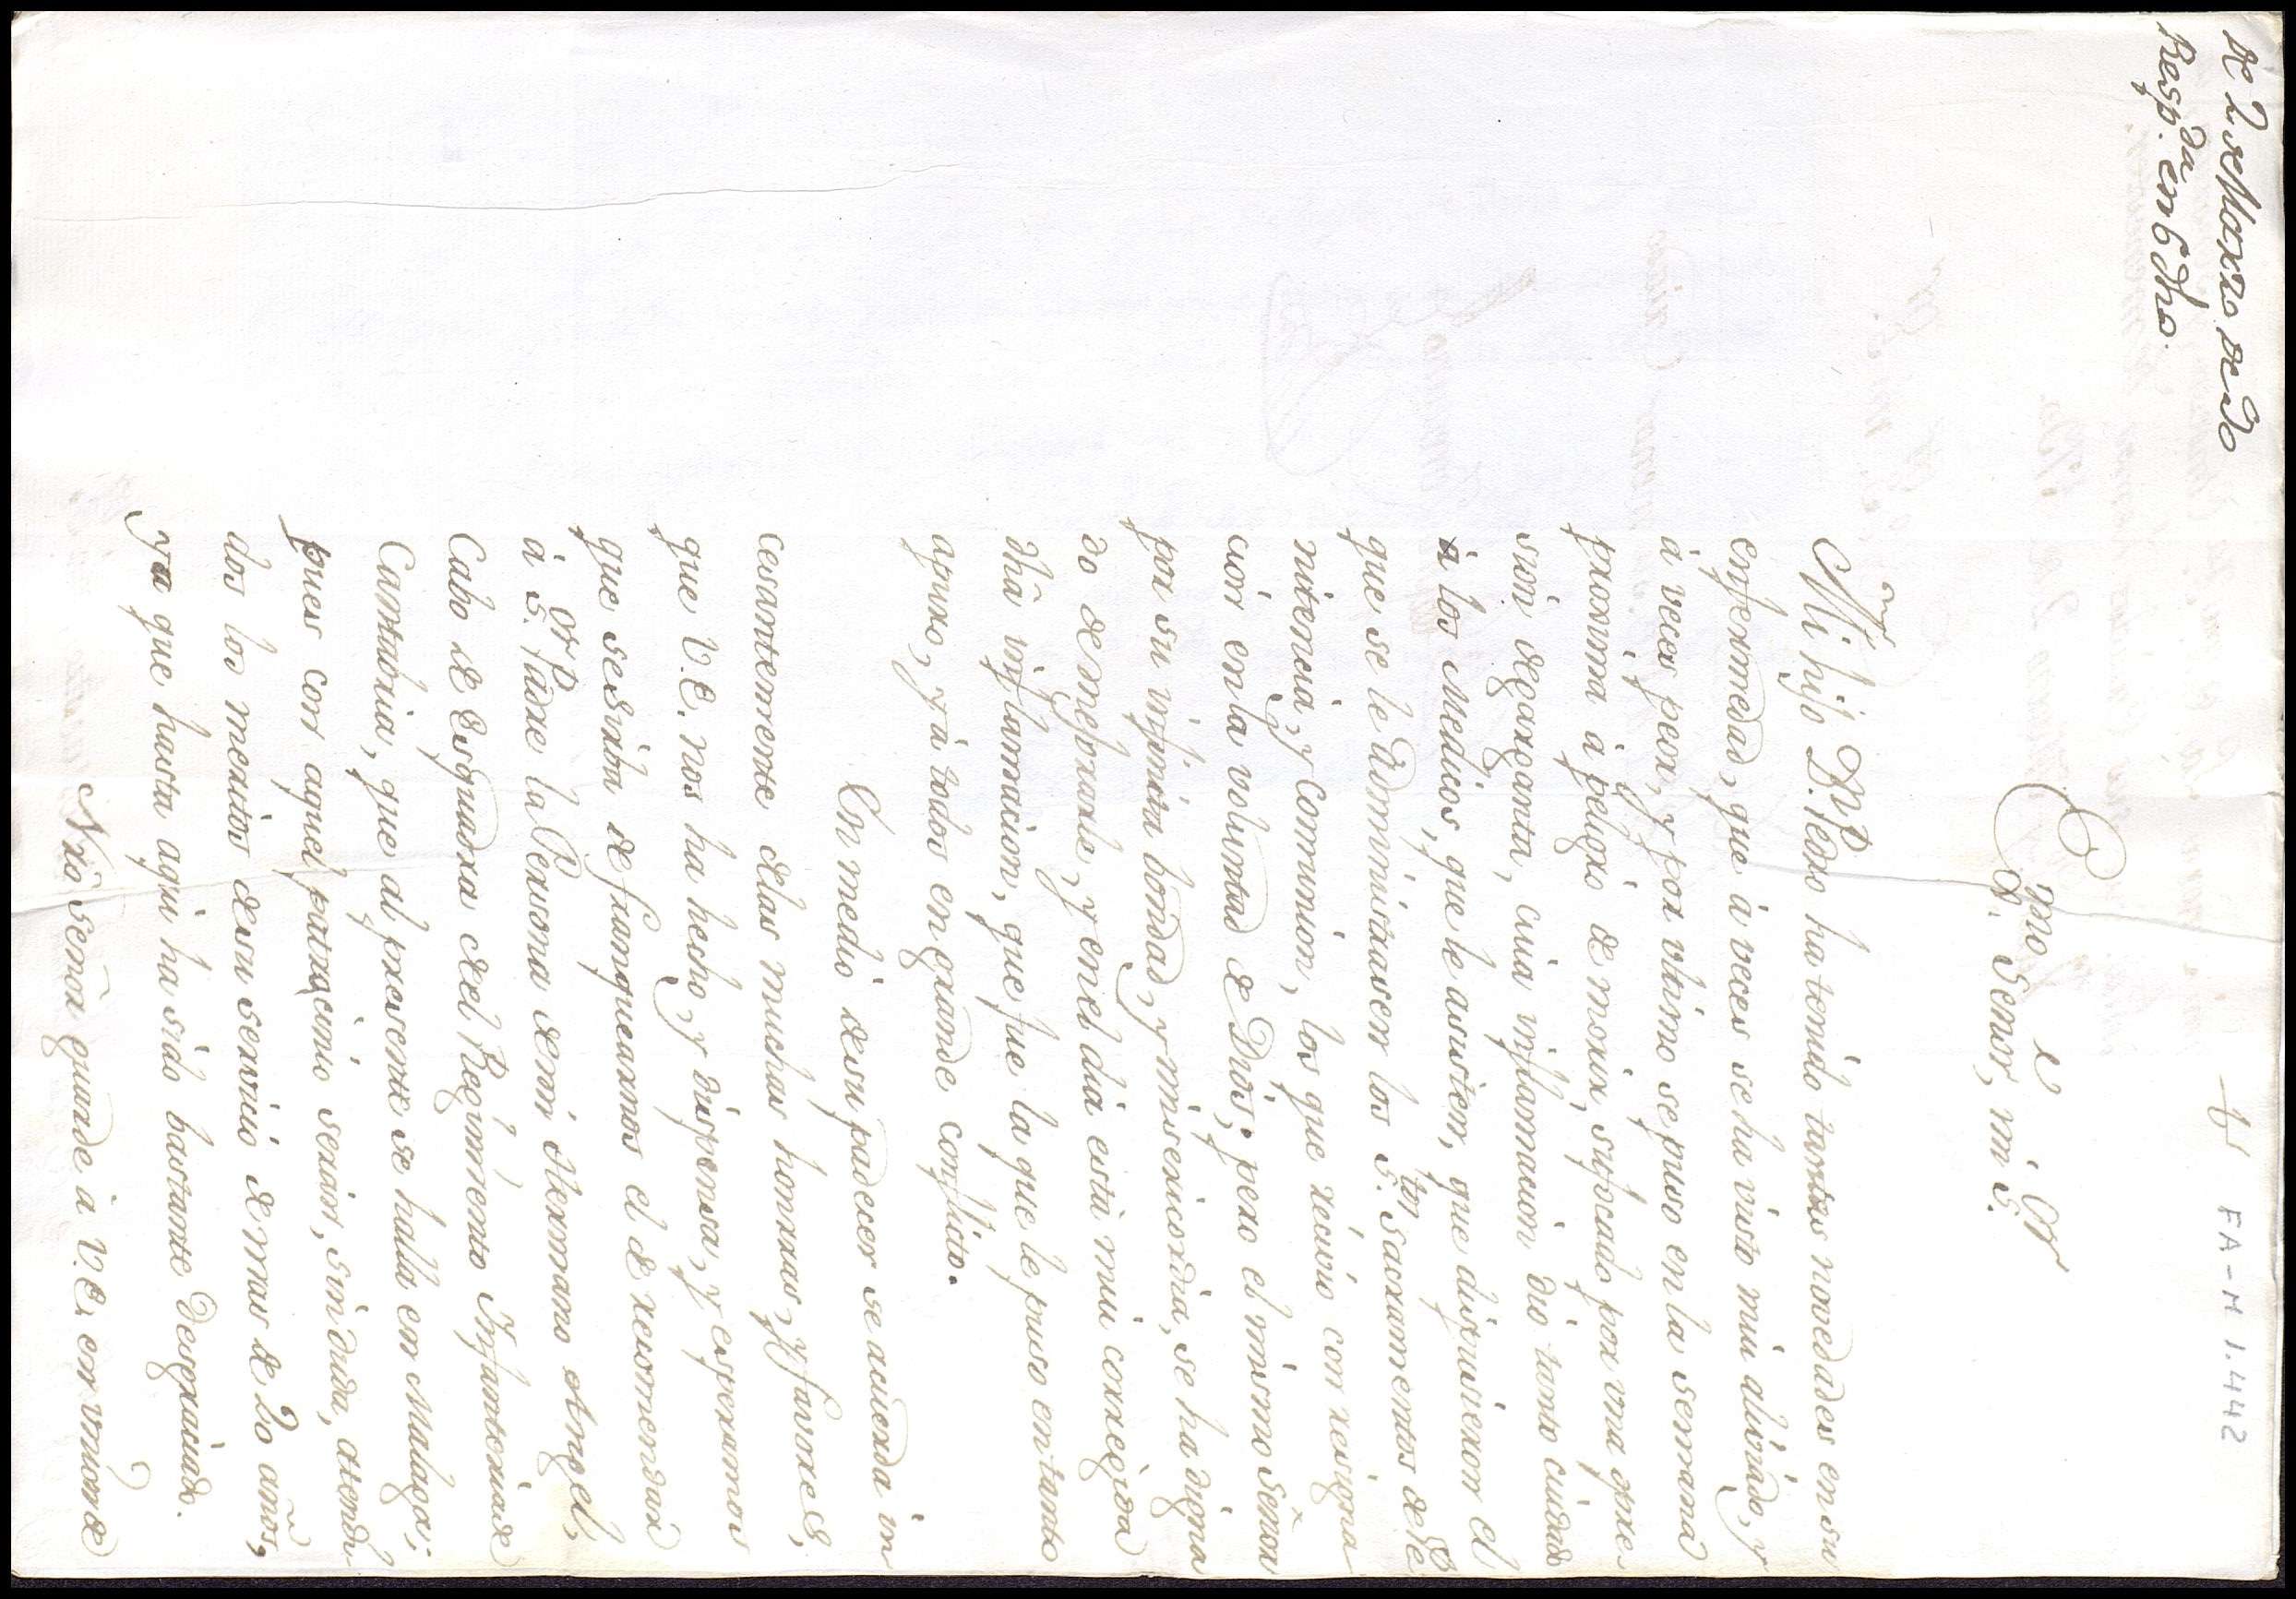 de 2 de Marzo de do
Resp.da en 6 dho.
FA-M 1.442
Exmo
Sor. Señor, mi Sor.
Mi hijo Dn. Pedro ha tenido tantas novedades en su
enfermedad, que à veces se ha visto mui alibiado, y
à veces peor, y por ultimo se puso en la semana
proxima à peligro de morir, sufocado por una opre-
sion de garganta, cuia inflamacion dió tanto cuidado
à los Medicos, que le asisten, que dispusieron el
que se le administrasen los Stos. Sacramentos de Pe
nitencia, y Comunion, los que recivió con resigna
cion en la voluntad de Dios; pero el mismo Señor
por su infinita bondad, y misericordia, se ha digna
do de mejorarle, y en el dia està mui corregida
dha inflamacion, que fue la que le puso en tanto
apuro, y à todos en grande conflicto.
En medio de su padecer se acuerda in
cesantemente de las muchas honrras, y favores,
que V.E. nos ha hecho, y dispensa, y esperamos
que se sirba de franquearnos el de recomendar
à Sor. Padre la Persona de mi Hermano Angel,
Cabo de Esquadra del Regimiento Infanteria de
Cantabria, que al presente se halla en Malaga;
pues con aquel patrocinio serán, sin duda, atendi
dos los meritos de su servicio de mas de 20 años,
ya que hasta aqui ha sido bastante desgraciado.
Nro Señor guarde à V.E. en union de